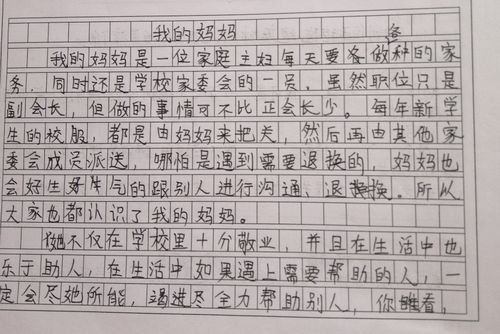 我的妈妈
我的妈妈是一位家庭主妇每天要做各种的家
务，同时还是学校家委会的一员。虽然职位只是
副会长，但做的事情可不比正会长少。每年新学
生的校服，都是由妈妈来把关，然后再由其他家
委会成员派送，哪怕是遇到需要退换的，妈妈也
会好生好气的跟别人进行沟通、退换。所以
大家也都认识了我的妈妈。
她不仅在学校里十分敬业，并且在生活中也
乐于助人，在生活中如果遇上需要帮助的人，一
定会尽她所能，竭尽全力帮助别人，你瞧看，